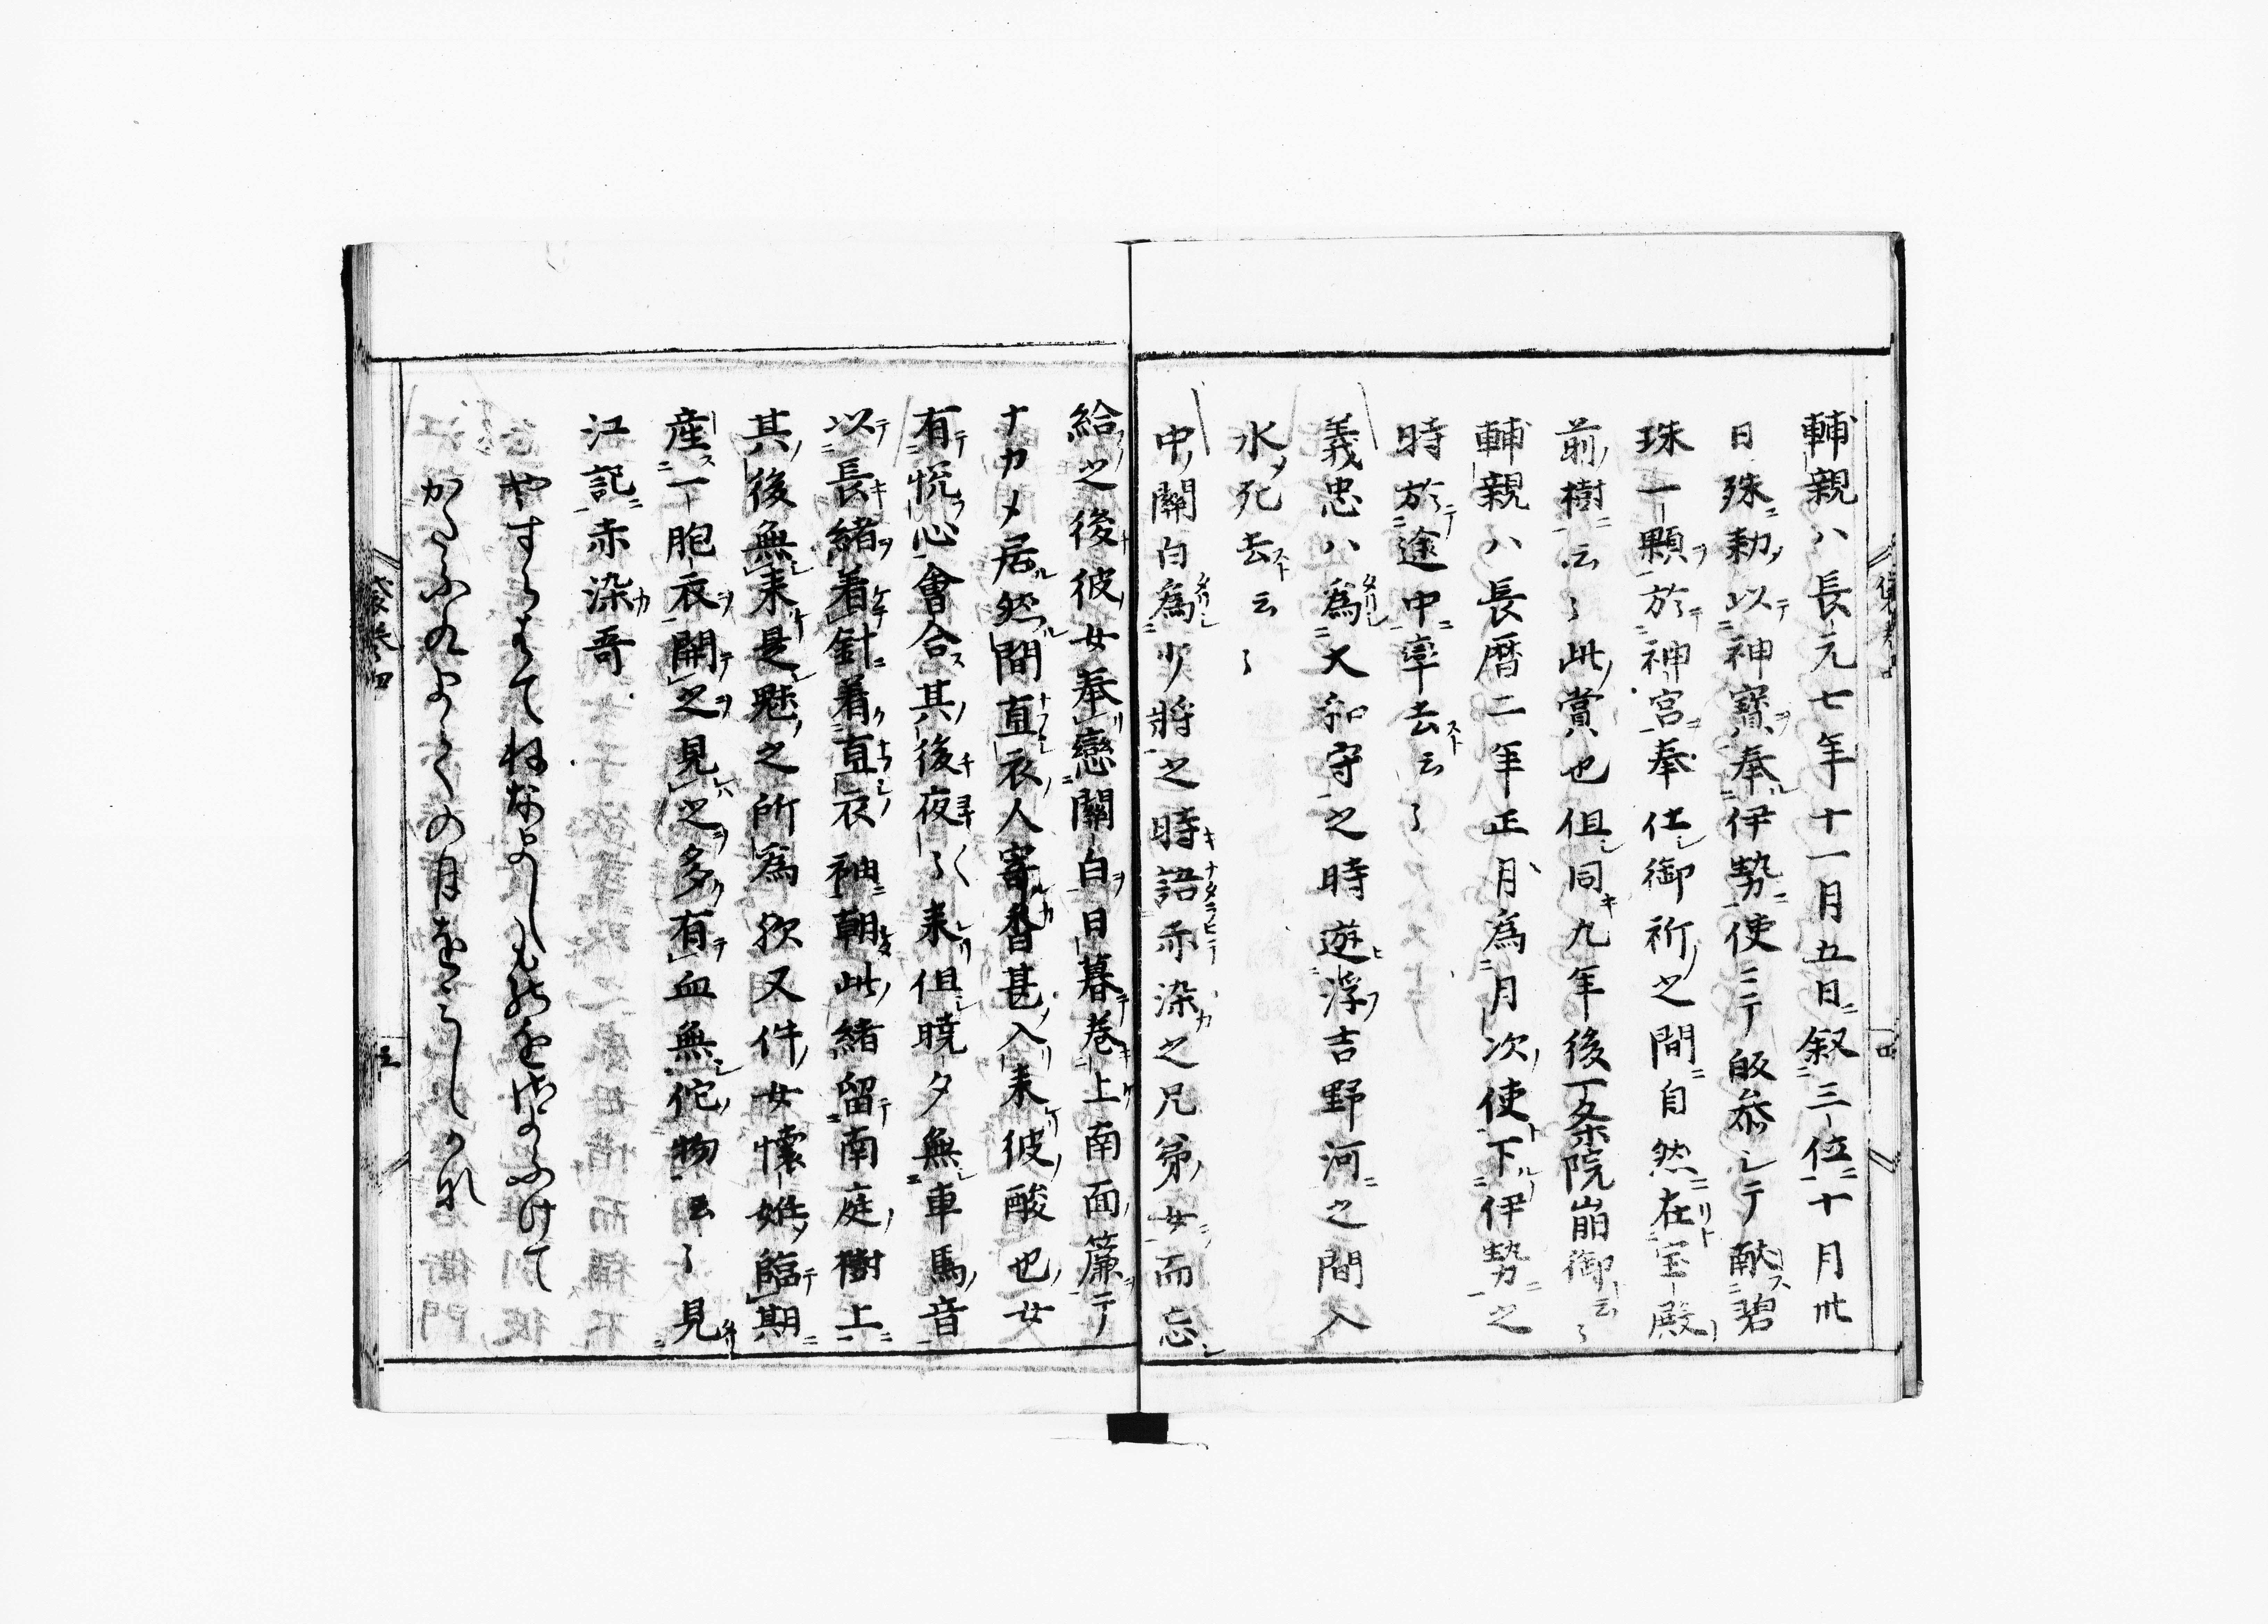 輔親ハ長元七年十一月五日叙三位十月卅
日殊勅以神寳奉伊勢使ニテ皈叅シテ献碧
珠一顆於神宮奉仕御祈之間自然在宝殿
前樹云々此賞也但同九年後一条院崩御云々
輔親ハ長暦二年正月爲月次使下伊勢之
時於途中卒去云々
義忠ハ爲大和守之時遊浮吉野河之間入
水死去云々
中關白爲少将之時語赤染之兄弟女而忘
給之後彼女奉戀關白日暮巻上南面簾テ
ナカメ居然間直衣人寄香甚入来彼殿也女
有悦心會合其後夜々来但暁夕無車馬音
以長緒着針着直衣袖朝此緒留南庭樹上
其後無来是魅之所爲欤又件女懐姙臨期
産一胞衣開之見之多有血無佗物云々見
江記赤染哥
やすらはてねなましものをさよふけて
かたふくまての月をみしかな
袋巻四
五